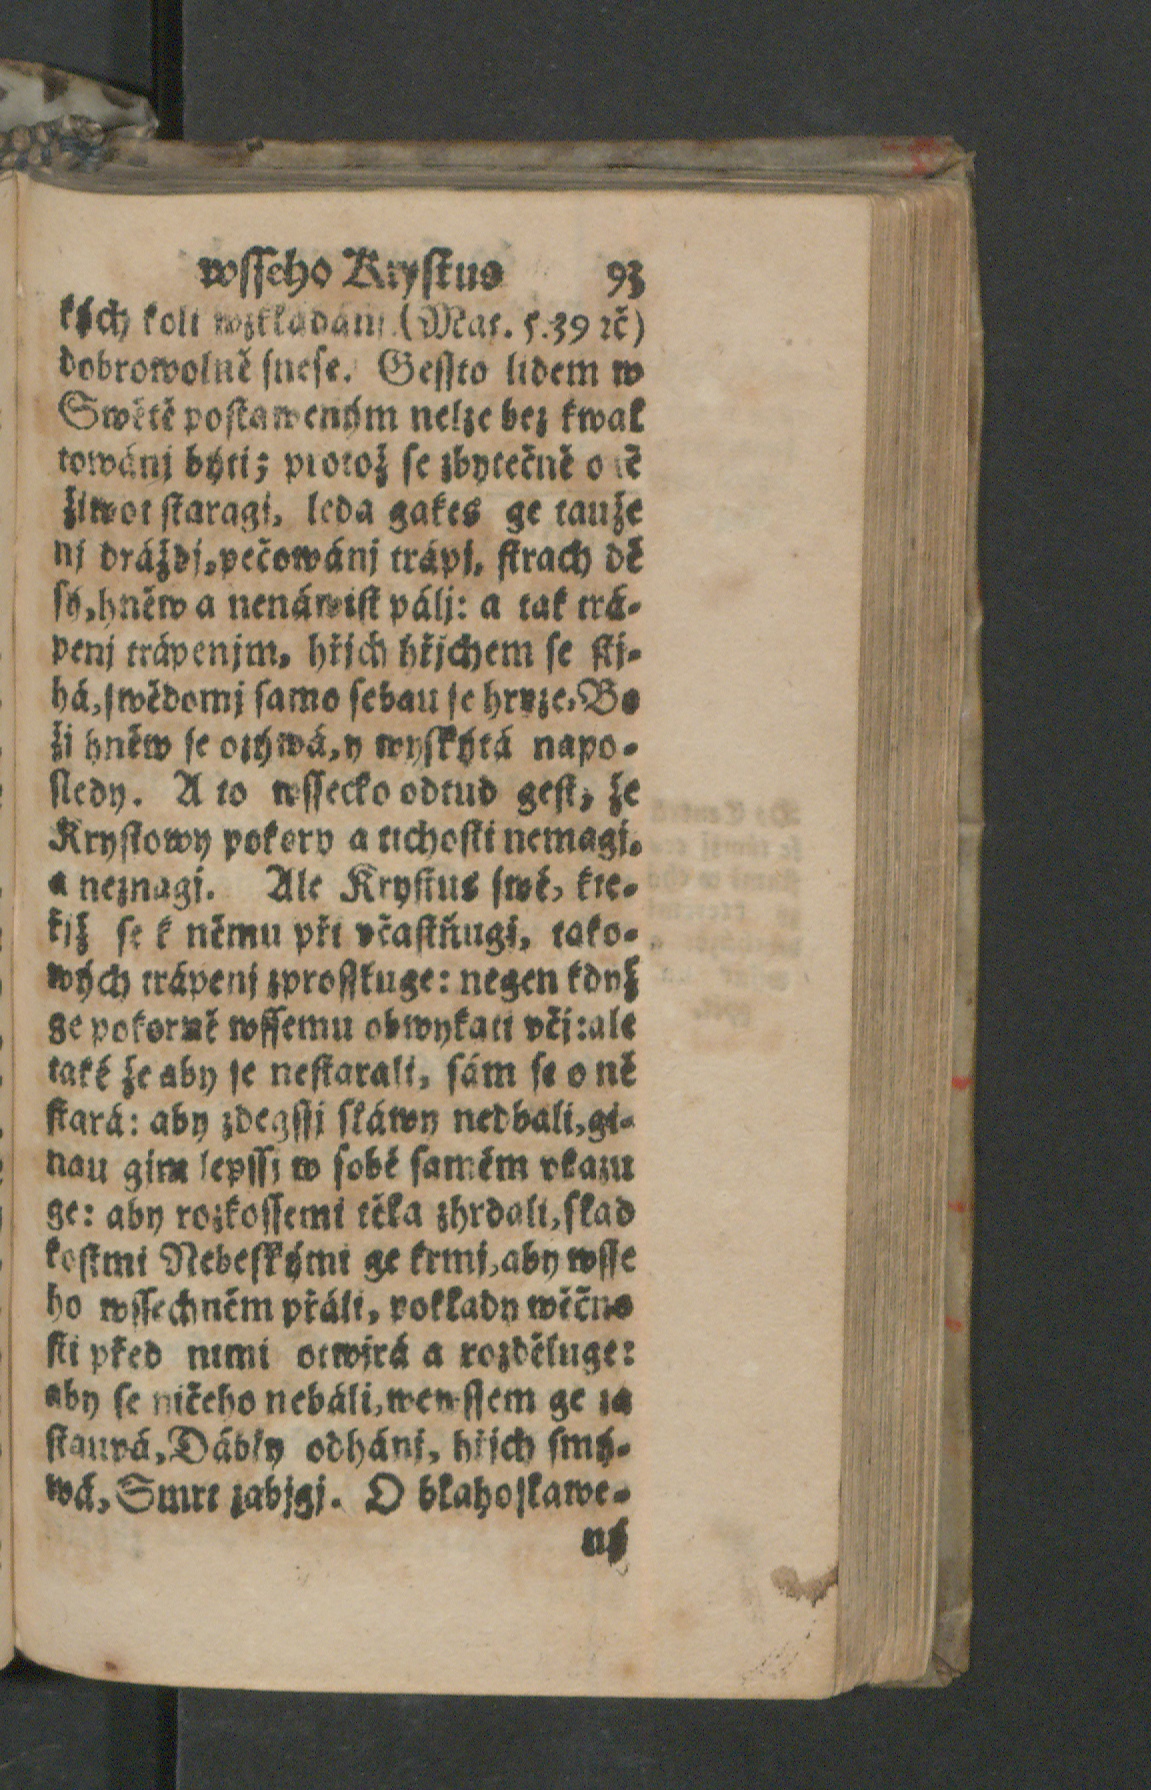 wsseho Krystus 93
kých koli wzkládánj (Mat. 5.39 ꝛč)
dobrowolně snese. Gessto lidem w
Swětě postaweným nelze bez kwal
towánj býti; protož se zbytečně o tě
žiwot staragj, leda gakes ge tauže
nj dráždj, pečowánj trápj, strach dě
sý, hněw a nenáwist páli: a tak trá-
penj trápenjm, hřjch hřjchem se stj-
há, swědomj samo sebau se hryze, Bo
ži hněw se ozýwá, y wyskýtá napo-
sledy. A to wssecko odtud gest, že
Krystowy pokory a tichosti nemagj,
a neznagj. Ale Krystus swé, kte-
řjž se k němu při včastňugj, tako-
wých trápenj zprosstuge: negen když
ge pokorně wssemu obwykati včj: ale
také že aby se nestarali, sám se o ně
stará: aby zdegssj sláwy nedbali, gi-
nau gim lepssj w sobě samém vkazu
ge: aby rozkossemi těla zhrdali, slad
kostmi Nebeskými ge krmj, aby wsse
ho wssechněm přáli, poklady wěčno
sti před nimi otwjrá a rozděluge:
aby se ničeho nebáli, wewssem ge za
staupá, Dábly odhánj, hřjch smý-
wá, Smrt zabjgj. O blahoslawe-
ný